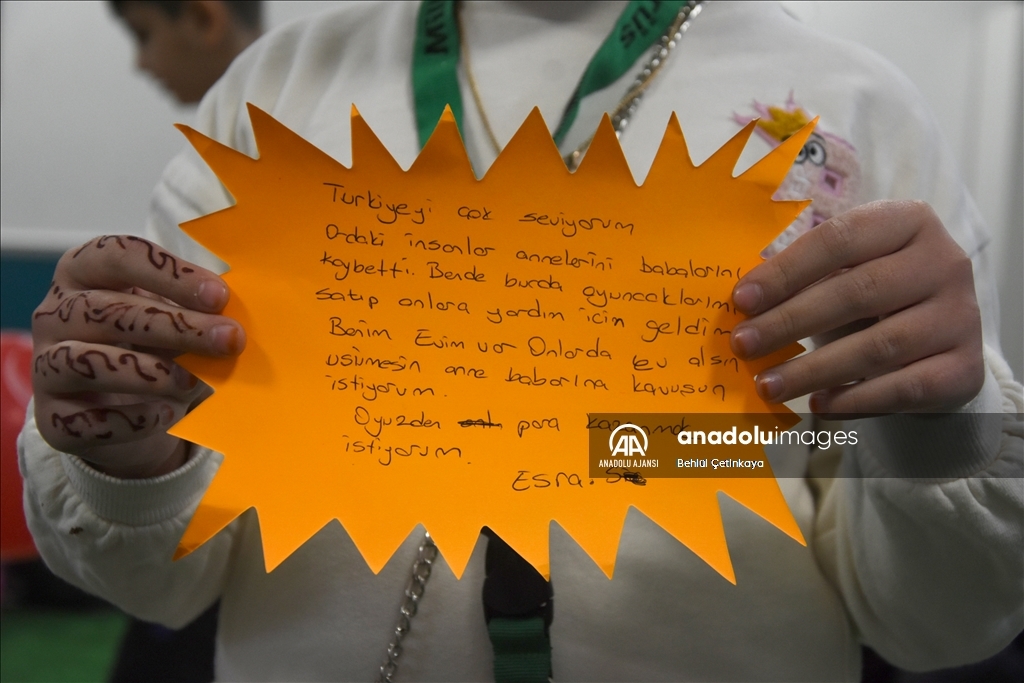 Türkiyeyi çok seviyorum
Ordaki insanlar annelerini babalarını
kaybetti. Bende burda oyuncaklarımı
satıp onlara yardım için geldim
Benim Evim var Onlarda ev alsın
üşümesin anne babarına kavuşsun
istiyorum.
Oyüzden para kazanmak
istiyorum.
Esra.
AA
ANADOLU AJANSI
anadoluimages
Behlül Çetinkaya